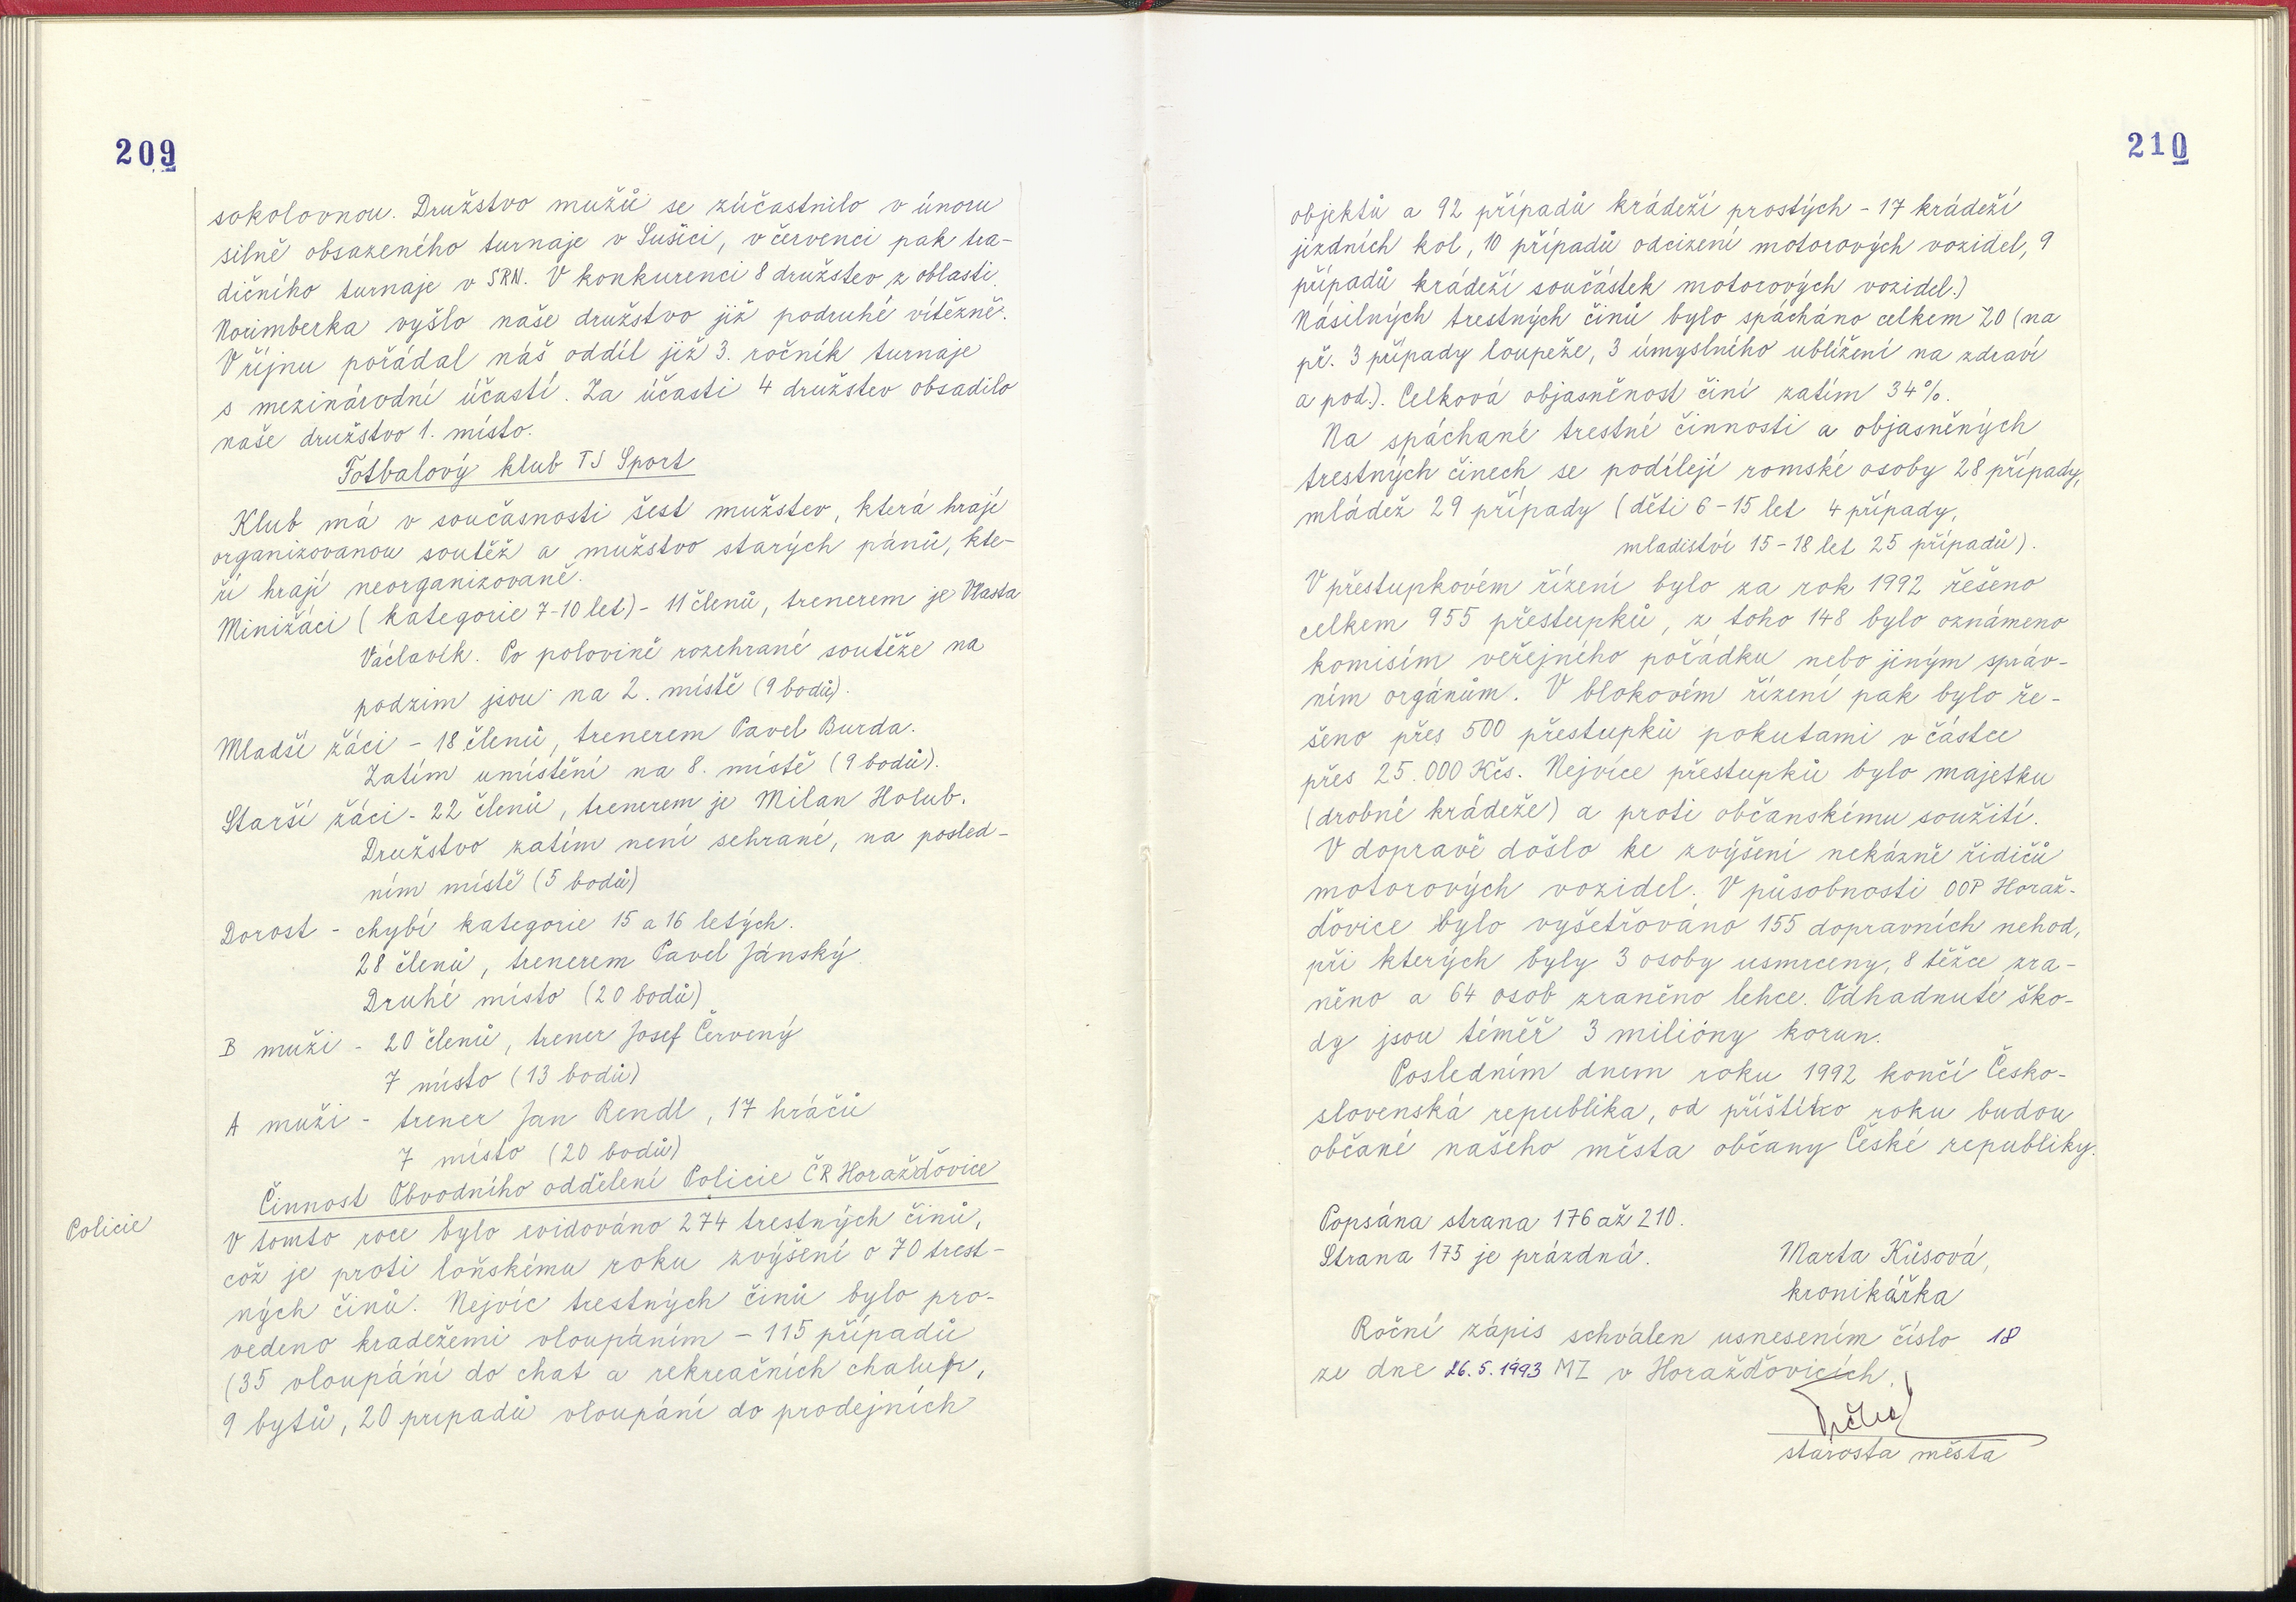 209
sokolovnou. Družstvo mužů se zúčastnilo v únoru
silně obsazeného turnaje v Sušici, v červenci pak tra-
dičního turnaje v SRN. V konkurenci 8 družstev z oblasti
Norimberka vyšlo naše družstvo již podruhé vítězně.
V říjnu pořádal náš oddíl již 3. ročník turnaje
s mezinárodní účastí. Za účasti 4 družstev obsadilo
naše družstvo 1. místo.
Fotbalový klub TJ Sport
Klub má v současnosti šest mužstev, která hrají
organizovanou soutěž a mužstvo starých pánů, kte-
ří hrají neorganizovaně.
Minižáci (kategorie 7-10 let) - 11 členů, trenerem je Vlasta
Václavík. Po polovině rozehrané soutěže na
podzim jsou na 2. místě (9 bodů).
Mladší žáci - 18 členů, trenerem Pavel Burda.
Zatím umístění na 8. místě (9 bodů).
Starší žáci - 22 členů, trenerem je Milan Holub.
Družstvo zatím není sehrané, na posled-
ním místě (5 bodů)
Dorost - chybí kategorie 15 a 16 letých.
28 členů, trenerem Pavel Jánský
Druhé místo (20 bodů)
B muži - 20 členů, trener Josef Červený
7 místo (13 bodů)
A muži - trener Jan Rendl, 17 hráčů
7 místo (20 bodů)
Činnost Obvodního oddělení Policie ČR Horažďovice
Policie
V tomto roce bylo evidováno 274 trestných činů,
což je proti loňskému roku zvýšení o 70 trest-
ných činů. Nejvíc trestných činů bylo pro-
vedeno kradežemi vloupáním - 115 případů
(35 vloupání do chat a rekreačních chalup,
9 bytů, 20 případů vloupání do prodejních
210
objektů a 92 případů krádeží prostých - 17 krádeží
jízdních kol, 10 případů odcizení motorových vozidel, 9
případů krádeží součástek motorových vozidel.)
Násilných trestných činů bylo spácháno celkem 20 (na
př. 3 případy loupeže, 3 úmyslného ublížení na zdraví
a pod.). Celková objasněnost činí zatím 34%.
Na spáchané trestné činnosti a objasněných
trestných činech se podílejí romské osoby 28 případy,
mládež 29 případy (děti 6-15 let 4 případy,
mladiství 15-18 let 25 případů).
V přestupkovém řízení bylo za rok 1992 řešeno
celkem 955 přestupků, z toho 148 bylo oznámeno
komisím veřejného pořádku nebo jiným správ-
ním orgánům. V blokovém řízení pak bylo ře-
šeno přes 500 přestupků pokutami v částce
přes 25.000 Kčs. Nejvíce přestupků bylo majetku
(drobné krádeže) a proti občanskému soužití.
V dopravě došlo ke zvýšení nekázně řidičů
motorových vozidel. V působnosti OOP Horaž-
ďovice bylo vyšetřováno 155 dopravních nehod,
při kterých byly 3 osoby usmrceny, 8 těžce zra-
něno a 64 osob zraněno lehce. Odhadnuté ško-
dy jsou téměř 3 milióny korun.
Posledním dnem roku 1992 končí Česko-
slovenská republika, od příštího roku budou
občané našeho města občany České republiky.
Popsána strana 176 až 210.
Strana 175 je prázdná.
Marta Kůsová,
kronikářka
Roční zápis schválen usnesením číslo 18
ze dne 26.5.1993 MZ v Horažďovicích.
starosta města